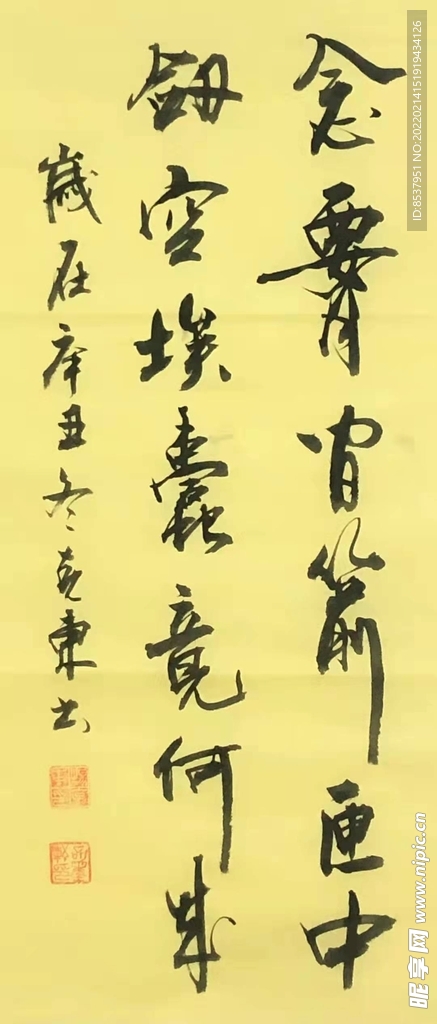 念腰间箭匣中
劔空埃蠹竟何成
歲在辛丑冬克東书
ID:8537951 NO:20220214151919434126
昵享网 www.nipic.cn